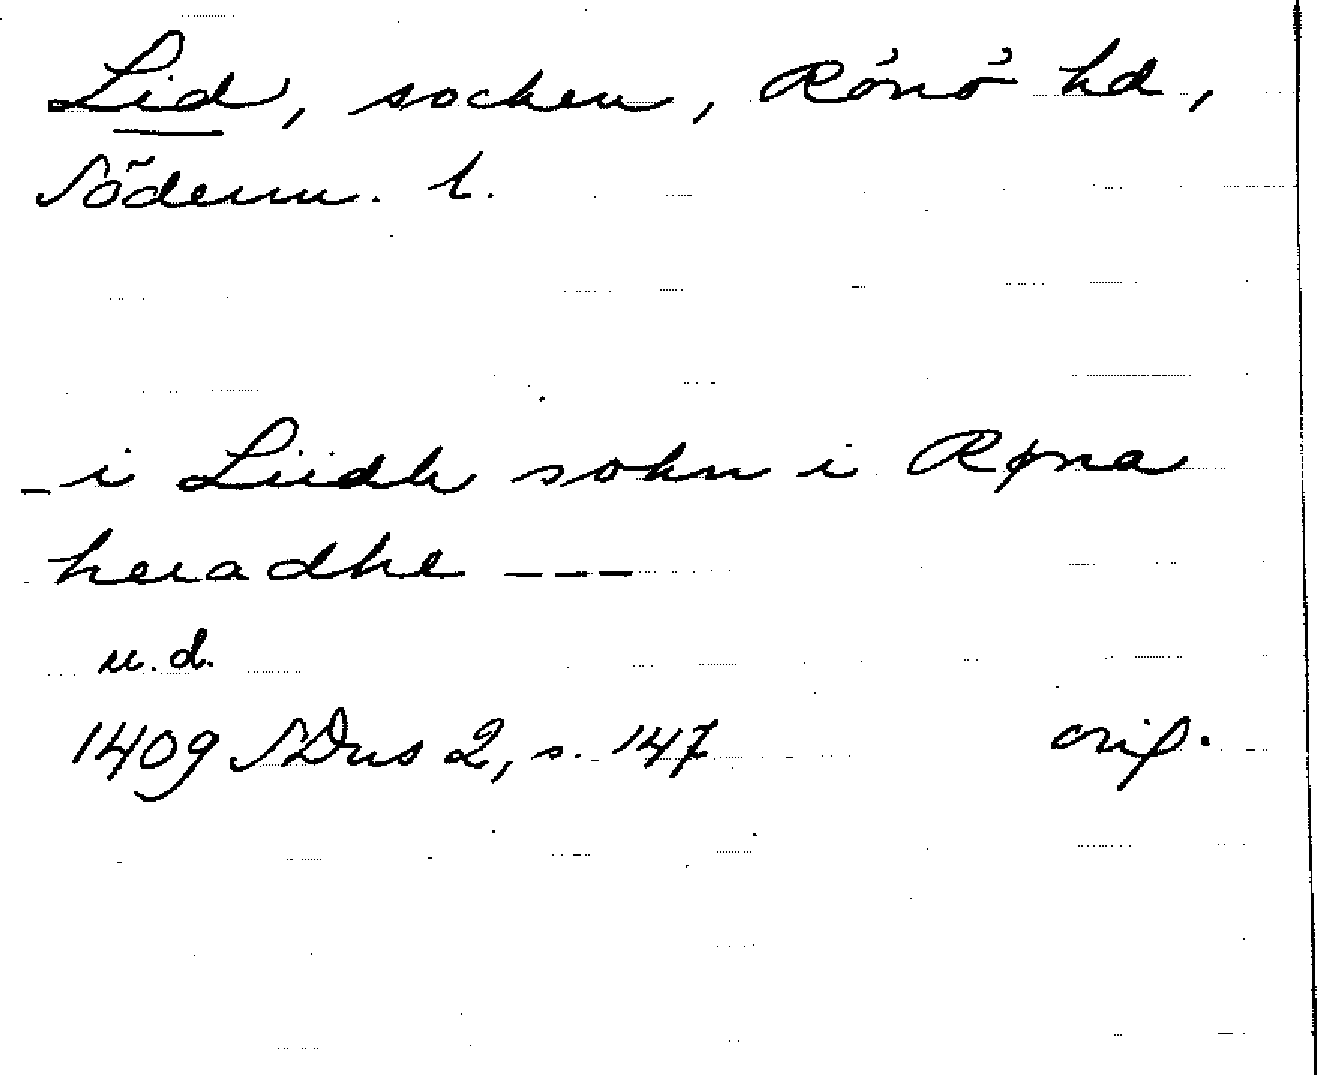 Lid, socken, Rönö hd,
Söderm. l.
_ i Liidh sokn i Røna
heradhe _ _ _
u.d.
1409 SDns 2, s. 147 orig.